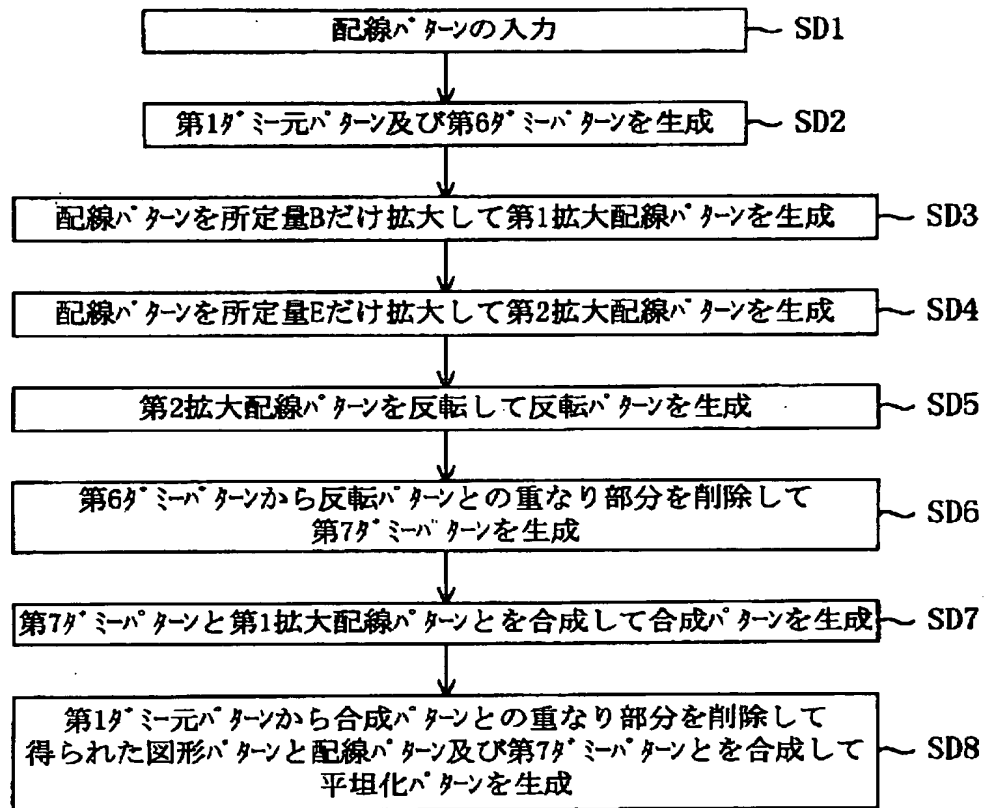 配線パターンの入力 SD1
第1ダミー元パターン及び第6ダミーパターンを生成 SD2
配線パターンを所定量Bだけ拡大して第1拡大配線パターンを生成 SD3
配線パターンを所定量Eだけ拡大して第2拡大配線パターンを生成 SD4
第2拡大配線パターンを反転して反転パターンを生成 SD5
第6ダミーパターンから反転パターンとの重なり部分を削除して
第7ダミーパターンを生成 SD6
第7ダミーパターンと第1拡大配線パターンとを合成して合成パターンを生成 SD7
第1ダミー元パターンから合成パターンとの重なり部分を削除して
得られた図形パターンと配線パターン及び第7ダミーパターンとを合成して SD8
平坦化パターンを生成